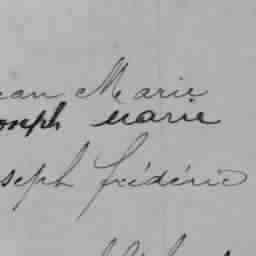 ean Marie
oseph Marie
seph frédéric